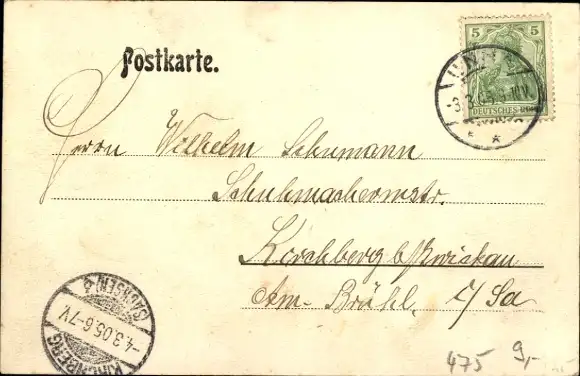 Postkarte.
5 5
DEUTSCHES REICH
UNNA
Herrn Wilhelm Schumann
Schuhmachermstr.
Kirchberg b/Zwickau
Am Brühl. i/Sa
KIRCHBERG
-4.3.05.6-7V.
(SACHSEN)
475 9,-